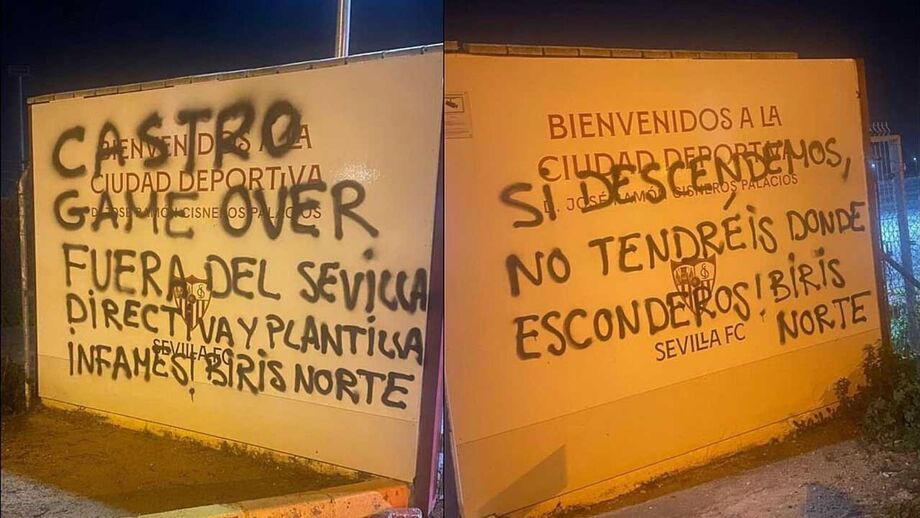 CASTRO
GAME OVER
FUERA DEL SEVILLA
DIRECTIVA Y PLANTILLA
INFAMES! BIRIS NORTE
BIENVENIDOS A LA
CIUDAD DEPORTIVA
D. JOSÉ RAMÓN CISNEROS PALACIOS
SEVILLA FC
BIENVENIDOS A LA
CIUDAD DEPORTIVA
D. JOSÉ RAMÓN CISNEROS PALACIOS
SI DESCENDEMOS,
NO TENDRÉIS DONDE
ESCONDEROS! BIRIS
NORTE
SEVILLA FC